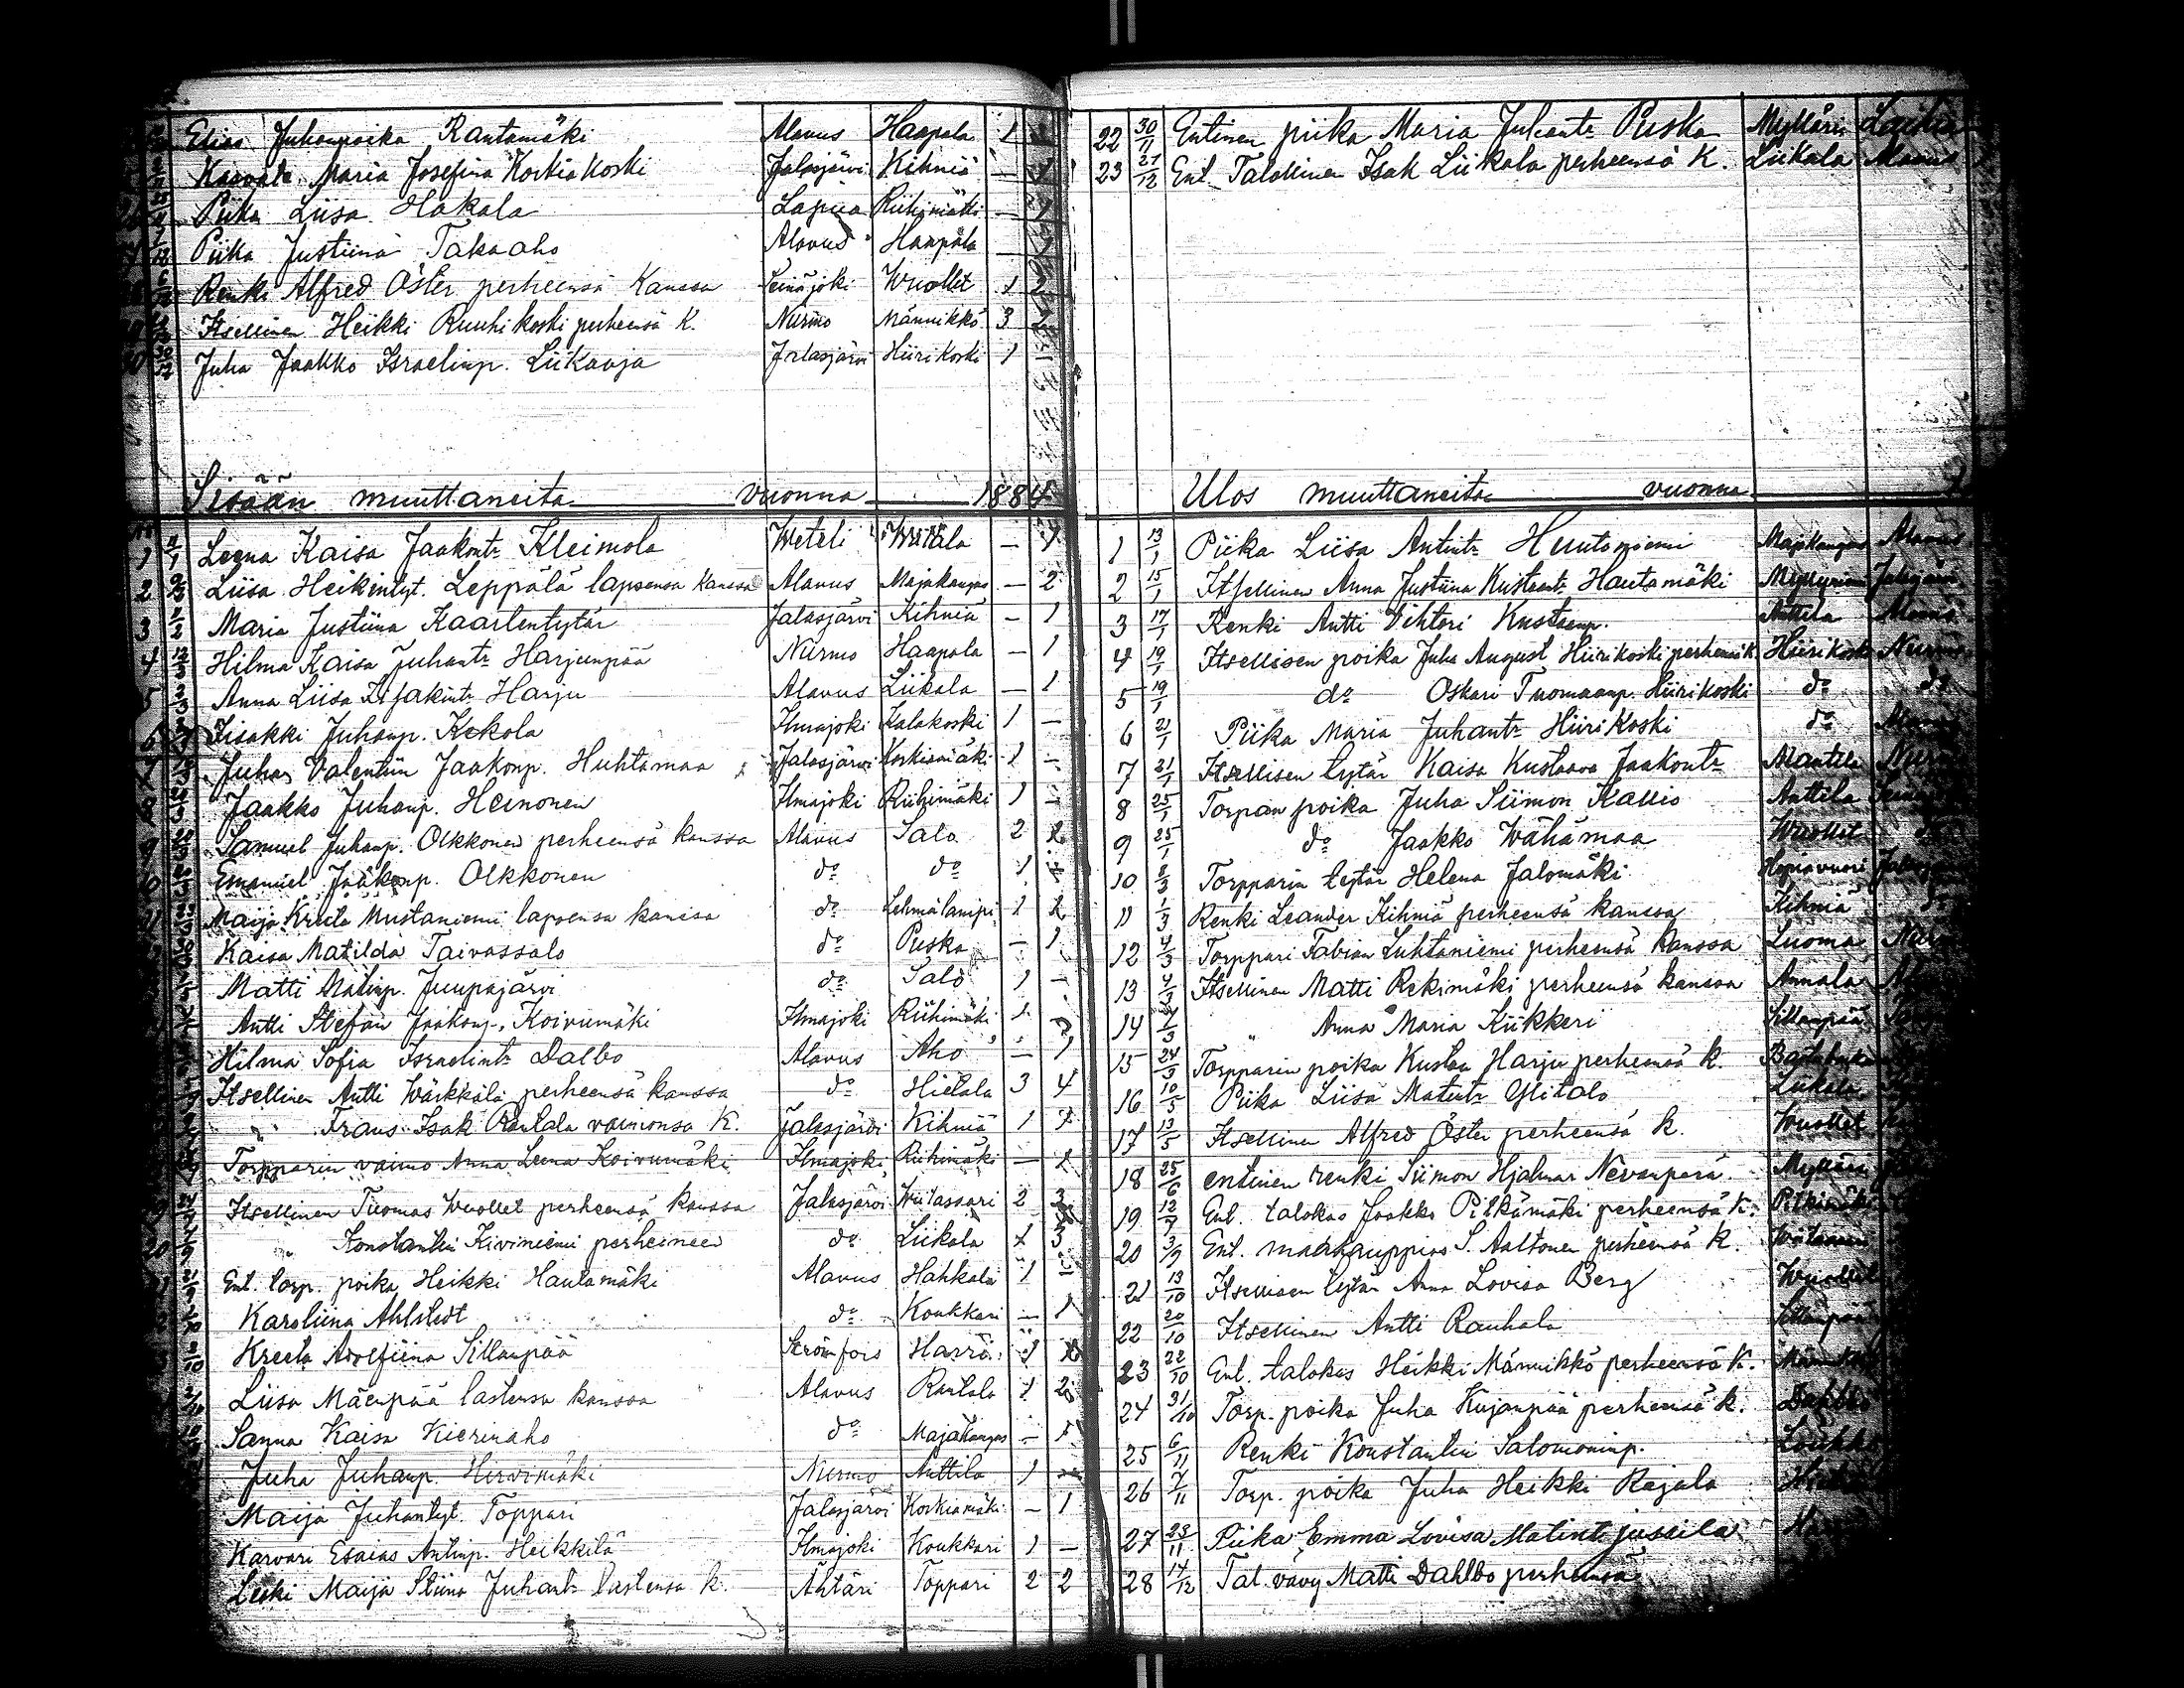 Elias Juhanpoika Rantamäki Alavus Haapala 1
Maria Josefina Koskiakoski Jalasjärvi Kihniä —
Piika Liisa Hakala Lapua Riihimäki —
Piika Justiina Takaaho Alavus Haapala
Renki Alfred Öster perheensä Kanssa Seinäjoki Wuollet 1 2
Itsellinen Heikki Ruuhikoski perheensä K. Nurmo Männikkö 3 2
Juha Jaakko Israelinp. Liikaoja Jalasjärvi Hiirikoski 1
Sisään muuttaneita vuonna 1884
1 Leena Kaisa Jaakontr Kleimola Weteli —
2 Liisa Heikintyt. Leppälä lapsensa kanssa Alavus Majakangas — 2
3 1/2 Maria Justiina Kaarlentytär Jalasjärvi Kihniä — 1
4 Hilma Kaisa Juhantr Harjunpää Nurmo Haapala — 1
5 Anna Liisa Harju Alavus Liikala — 1
6 Iisakki Juhanp. Kekola Ilmajoki Kalakoski 1 —
7 Juha Valentiin Jaakonp. Huhtamaa Jalasjärvi Koskiamäki 1 —
8 Jaakko Juhanp. Heinonen Ilmajoki Riihimäki 1 —
9 Samuel Juhanp. Olkkonen perheensä kanssa Alavus Salo 2 2
Emanuel Jaakonp. Olkkonen do do 1
Maija Kreeta Mustaniemi lapsensa kanssa do 1
Kaisa Matilda Taivassalo do Puska — 1
Matti Matinp. Juupajärvi do Salo 1 —
Antti Stefan Jaakonp. Koivumäki Ilmajoki Riihimäki 1
Hilma Sofia Israelintr Dalbo Alavus Aho — 1
Itsellinen Antti Wärkkälä perheensä kanssa do Hietala 3 4
" Frans Isak Rantala vaimonsa K. Jalasjärvi Kihniä 1
Torpparin vaimo Anna Leena Koivumäki Ilmajoki Riihimäki —
Itsellinen Tuomas Wuollet perheensä kanssa Jalasjärvi Wiitassaari 2 3
20 " Konstantin Kiviniemi perheineen do Liikala 3
Ent. torp. poika Heikki Hautamäki Alavus Hahkala 1 —
Karoliina Ahlstedt do Koukkari — 1
Kreeta Adolfiina Sillanpää Strömfors Harri
Liisa Mäenpää lastensa kanssa Alavus Rantala 1 2
Sanna Kaisa Kierinaho do Majakangas —
Juha Juhanp. Hirvimäki Nurmo Anttila 1
Maija Juhantyt. Toppari Jalasjärvi Koskiamäki — 1
Karvari Esaias Antinp. Heikkilä Ilmajoki Koukkari 1 —
Leski Maija Stiina Juhantr lastensa k. Ähtäri Toppari 2 2
22 30/11 Entinen piika Maria Juhantr Puska Mylläri Laihia
23 27/12 Ent. Talollinen Isak Liikala perheensä K. Liikala Alavus
Ulos muuttaneita vuonna
1 13/1 Piika Liisa Antintr Huutoniemi Majakangas Alavus
2 15/1 Itsellinen Anna Justiina Kustaantr Hautamäki Jalasjärvi
3 17/1 Renki Antti Vihtori Kustaanp. Anttila Alavus
4 19/1 Itsellisen poika Juha August Hiirikoski perheensä k. Hiirikoski Nurmo
5 19/1 do Oskari Tuomaanp. Hiirikoski do do
6 21/1 Piika Maria Juhantr Hiirikoski do
7 21/1 Itsellisen tytär Kaisa Kustaava Jaakontr Mantila
8 25/1 Torpan poika Juha Siimon Kallio Anttila
9 25/1 do Jaakko Wähämaa Wuollet
10 Torpparin tytär Helena Jalomäki Hapiavuori
11 1/3 Renki Leander Kihniä perheensä kanssa Kihniä
12 4/3 Torppari Fabian Luhtaniemi perheensä kanssa Luoma
13 4/3 Itsellinen Matti Rekimäki perheensä kanssa Annala
14 " Anna Maria Kiikkeri Sillanpää
15 24/3 Torpparin poika Kustaa Harju perheensä k.
16 10/5 Piika Liisa Matintr Ylitalo Liikala
17 13/5 Itsellinen Alfred Öster perheensä k. Wuollet
18 25/6 entinen renki Siimon Hjalmar Nevanperä Mylläri
19 12/7 Ent. talokas Jaakko Pitkämäki perheensä K. Pitkämäki
20 3/9 Ent. maakauppias S. Aaltonen perheensä K.
21 13/10 Itsellisen tytär Anna Lovisa Berg Wuollet
22 20/10 Itsellinen Antti Rauhala Sillanpää
23 22/10 Ent. talokas Heikki Männikkö perheensä K.
24 31/10 Torp. poika Juha Kujanpää perheensä k. Dahlbo
25 6/11 Renki Konstantin Salomoninp.
26 7/11 Torp. poika Juha Heikki Rajala
27 23/11 Piika Emma Lovisa Matintr Jussila
28 14/12 Tal. vävy Matti Dahlbo perheensä